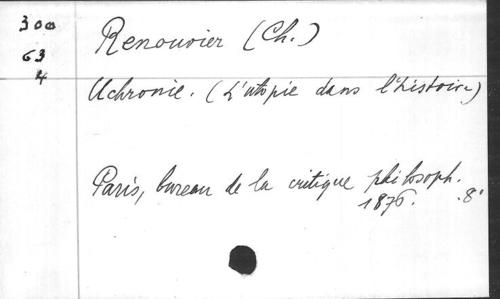 300
63
4
Renouvier (Ch.)
Uchronie. (L'utopie dans l'histoire)
Paris, bureau de la critique philosoph.
1876. 8°